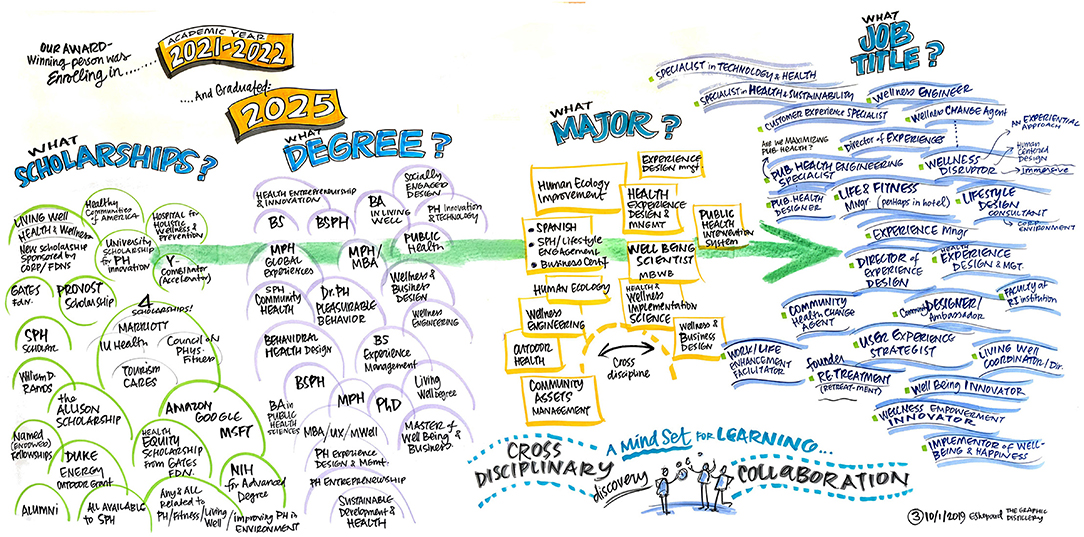 OUR AWARD-
Winning person was
Enrolling in......
ACADEMIC YEAR
2021-2022
....And Graduated:
2025
WHAT
SCHOLARSHIPS?
LIVING Well
HEALTH & Wellness
New Scholarship
Sponsored by
CORP/FDNS
Healthy
Communities of
AMERICA
HOSPITAL for
HOLISTIC
Wellness &
Prevention
University
SCHOLARSHIP
for PH
Innovation
Y-
Combinator
(Accelerator)
GATES
FDN.
PROVOST
Scholarship
4
SCHOLARSHIPS!
MARRIOTT
IU Health
Council on
Phys.
Fitness
TOURISM
CARES
SPH
SCHOLAR
William D.
RAMOS
the
ALLISON
SCHOLARSHIP
AMAZON
GOOGLE
MSFT
Named
(ENDOWED)
Fellowships
DUKE
ENERGY
OUTDOOR Grant
HEALTH
EQUITY
SCHOLARSHIP
from GATES
FDN.
NIH
for Advanced
Degree
ALUMNI
ALL AVAILABLE
to SPH
Any & All
Related to
PH/Fitness/Living
Well/improving PH in
ENVIRONMENT
WHAT
DEGREE?
HEALTH ENTREPRENEURSHIP
& INNOVATION
BS
BSPH
BA
IN LIVING
WELL
SOCIALLY
ENGAGED
DESIGN
PH Innovation
& TECHNOLOGY
MPH
GLOBAL
Experiences
MPH/
MBA
PUBLIC
Health
SPH
Community
HEALTH
Dr. PH
PLEASURABLE
BEHAVIOR
Wellness &
Business
DESIGN
Wellness
ENGINEERING
BEHAVIORAL
HEALTH Design
BS
Experience
Management
BSPH
MPH
PhD
Living
Well degree
BA in
PUBLIC
HEALTH
SCIENCES
MBA/UX/MWell
MASTER of
Well Being &
Business
PH EXPERIENCE
DESIGN & Mgmt.
PH ENTREPRENEURSHIP
SUSTAINABLE
Development &
HEALTH
WHAT
MAJOR?
EXPERIENCE
DESIGN mngt
Human Ecology
Improvement
HEALTH
EXPERIENCE
DESIGN &
MNGMT
PUBLIC
HEALTH
INTERVENTION
SYSTEM
• SPANISH
• SPH/Lifestyle
ENGAGEMENT
• Business Cert.
WELL BEING
SCIENTIST
MBWB
HUMAN ECOLOGY
HEALTH &
Wellness
Implementation
SCIENCE
Wellness
ENGINEERING
Wellness &
Business
DESIGN
OUTDOOR
HEALTH
Cross
discipline
COMMUNITY
ASSETS
MANAGEMENT
A MIND SET FOR LEARNING...
CROSS
DISCIPLINARY
discovery
COLLABORATION
WHAT
JOB
TITLE?
SPECIALIST in TECHNOLOGY & HEALTH
SPECIALIST in HEALTH & SUSTAINABILITY
Wellness ENGINEER
CUSTOMER EXPERIENCE SPECIALIST
Wellness CHANGE Agent
AN EXPERIENTIAL
APPROACH
Are we MAXIMIZING
PUB. HEALTH?
Director of EXPERIENCES
Human
Centered
Design
PUB. HEALTH ENGINEERING
SPECIALIST
WELLNESS
DISRUPTOR
Immersive
PUB. HEALTH
DESIGNER
LIFE & FITNESS
Mngr (perhaps in hotel)
LIFESTYLE
DESIGN
CONSULTANT
ENVIRONMENT
EXPERIENCE Mngr
DIRECTOR of
EXPERIENCE
DESIGN
HEALTH
EXPERIENCE
DESIGN & MGT.
COMMUNITY
Health CHANGE
AGENT
Community DESIGNER/
Ambassador
FACULTY of
RI institution
USER EXPERIENCE
STRATEGIST
WORK/LIFE
ENHANCEMENT
FACILITATOR
LIVING Well
COORDINATOR/Dir.
founder
RETREATMENT
(RETREAT-MENT)
Well Being INNOVATOR
WELLNESS EMPOWERMENT
INNOVATOR
IMPLEMENTOR of WELL-
BEING & HAPPINESS
3 10/1/2019 EShepard THE GRAPHIC
DISTILLERY